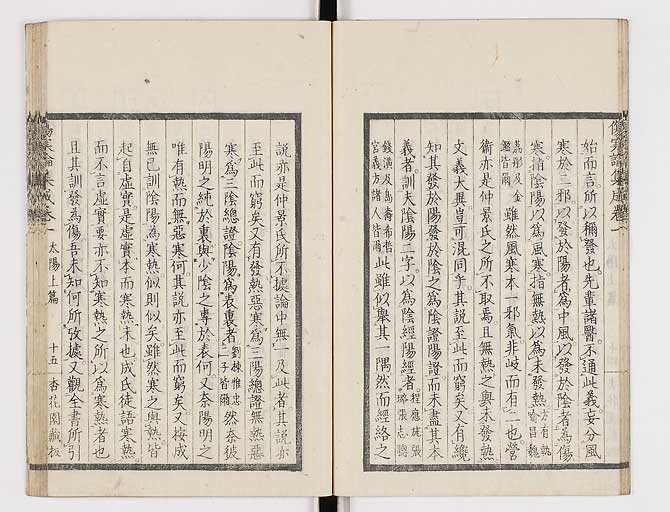 始而言所以稱發也先輩諸醫不通此義妄分風
寒於二邪以發於陽者爲中風以發於陰者爲傷
寒指陰陽以爲風寒指無熱以爲未發熱方有執喻昌魏
荔彤及金鑑皆爾雖然風寒本一邪氣非岐而有二也營
衞亦是仲景氏之所不取焉且無熱之與未發熱
文義大異豈可混同乎其說亦至此而窮矣又有纔
知其發於陽發於陰之爲陰證陽證而未盡其本
義者訓夫陰陽二字以爲陰經陽經者程應旄張璐張志聰
錢潢及島壽希哲宮義方諸人皆爾此雖似舉其一隅然而經絡之
傷寒論集成卷一
說亦是仲景氏所不據論中無一及此者其說亦
至此而窮矣又有發熱惡寒爲三陽總證無熱惡
寒爲三陰總證陰陽爲表裏者劉棟惟忠二子皆爾然奈彼
陽明之純於裏與少陰之專於表何又奈陽明之
唯有熱而無惡寒何其說亦至此而窮矣又按成
無已訓陰陽爲寒熱似則似矣雖然寒之與熱皆
起自虛實是虛實本而寒熱末也成氏徒語寒熱
而不言虛實要亦不知寒熱之所以爲寒熱者也
且其訓發爲傷吾未知何所攷據又觀全書所引
傷寒論集成卷一 太陽上篇 十五 杏花園藏板